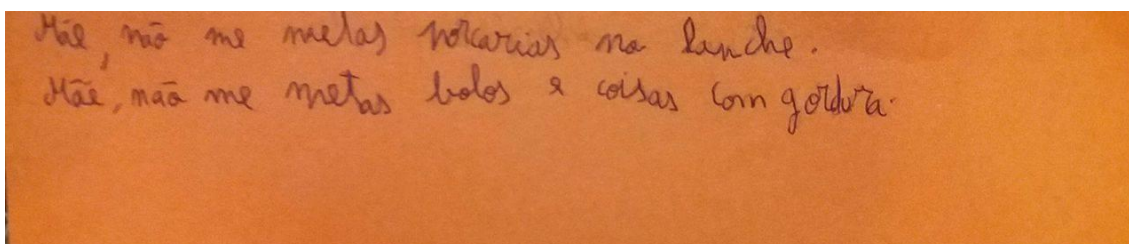 Mãe, não me metas porcarias no lanche.
Mãe, não me metas bolos e coisas com gordura.